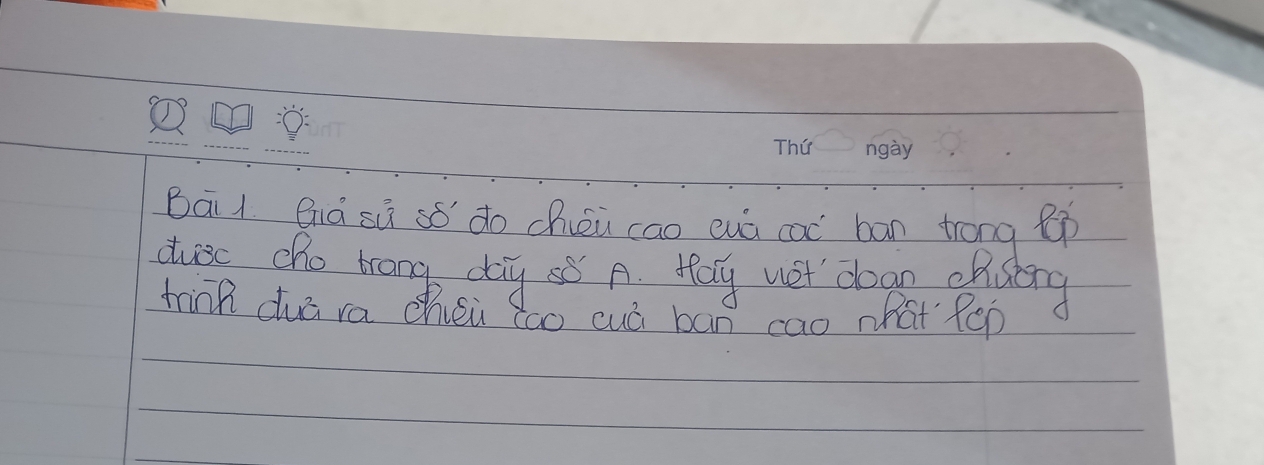 Thứ ngày
Bài 1. Giả sử số đo chiều cao của các bạn trong lớp
được cho trong dãy số A. Hãy viết đoạn chương
trình đưa ra chiều cao của bạn cao nhất lớp